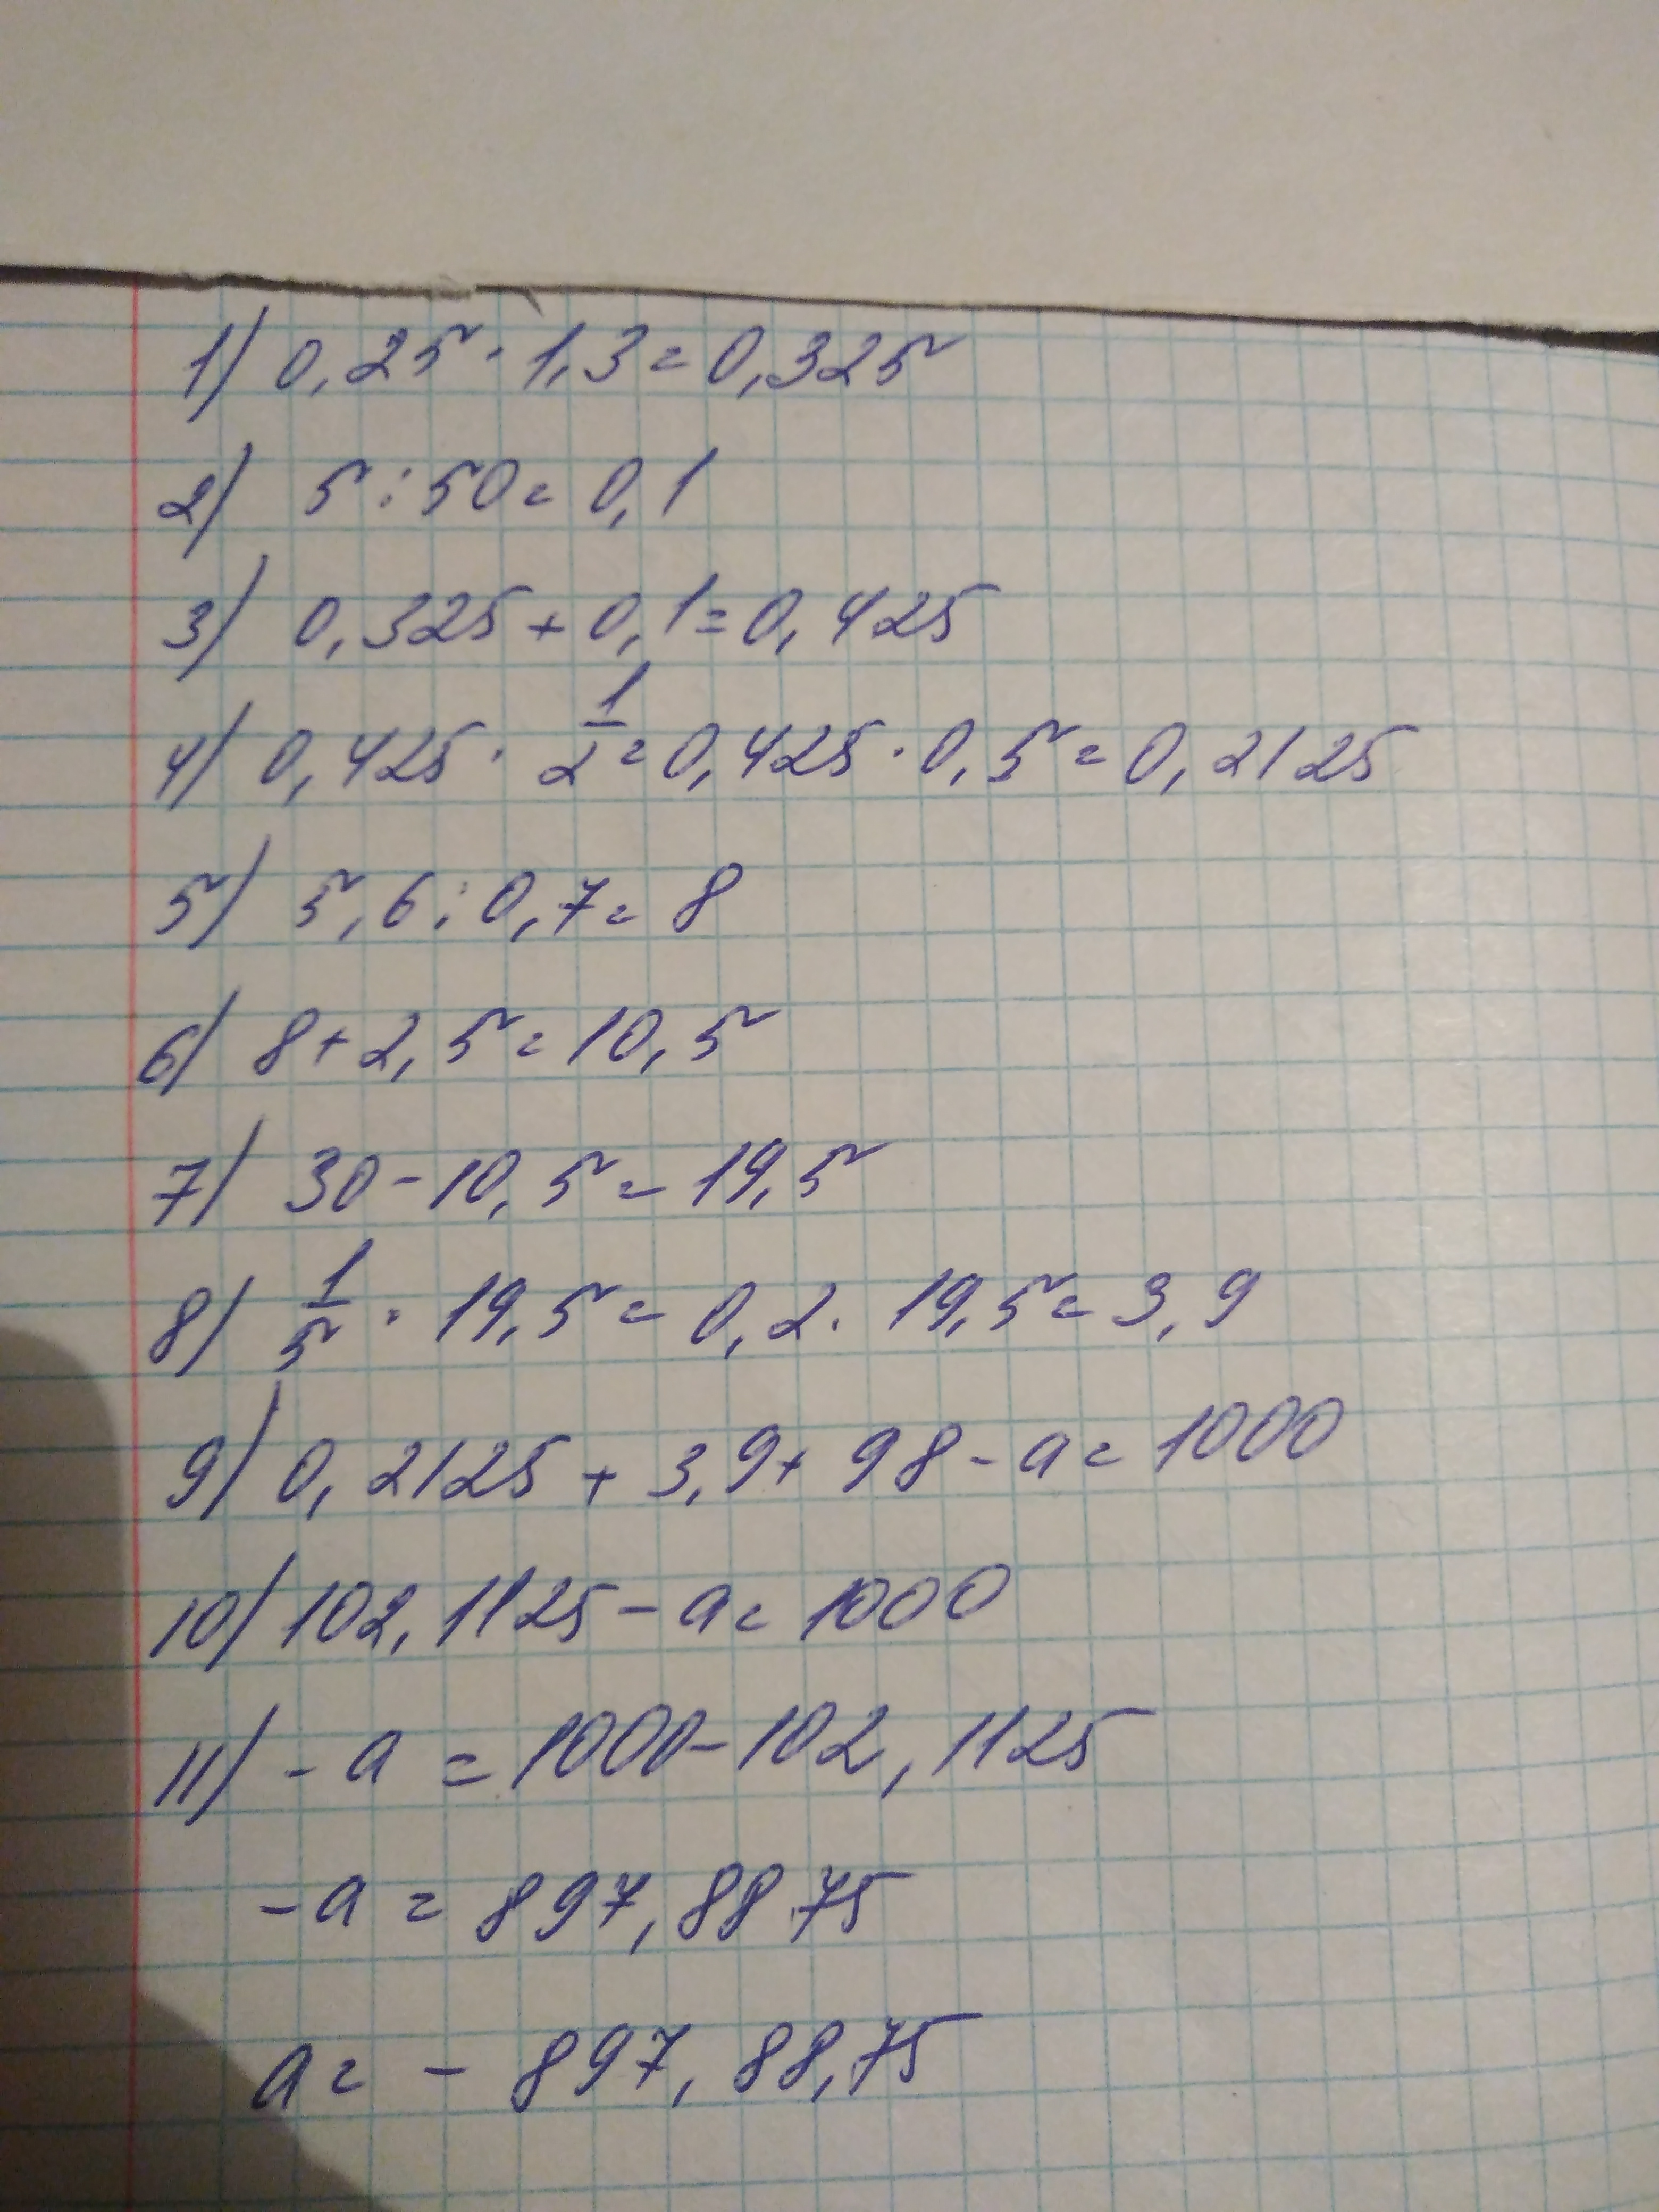 1) 0,25 · 1,3 = 0,325
2) 5 : 50 = 0,1
3) 0,325 + 0,1 = 0,425
4) 0,425 · 1/2 = 0,425 · 0,5 = 0,2125
5) 5,6 : 0,7 = 8
6) 8 + 2,5 = 10,5
7) 30 - 10,5 = 19,5
8) 1/5 · 19,5 = 0,2 · 19,5 = 3,9
9) 0,2125 + 3,9 + 98 - a = 1000
10) 102,1125 - a = 1000
11) - a = 1000 - 102,1125
- a = 897,8875
a = - 897,88,75